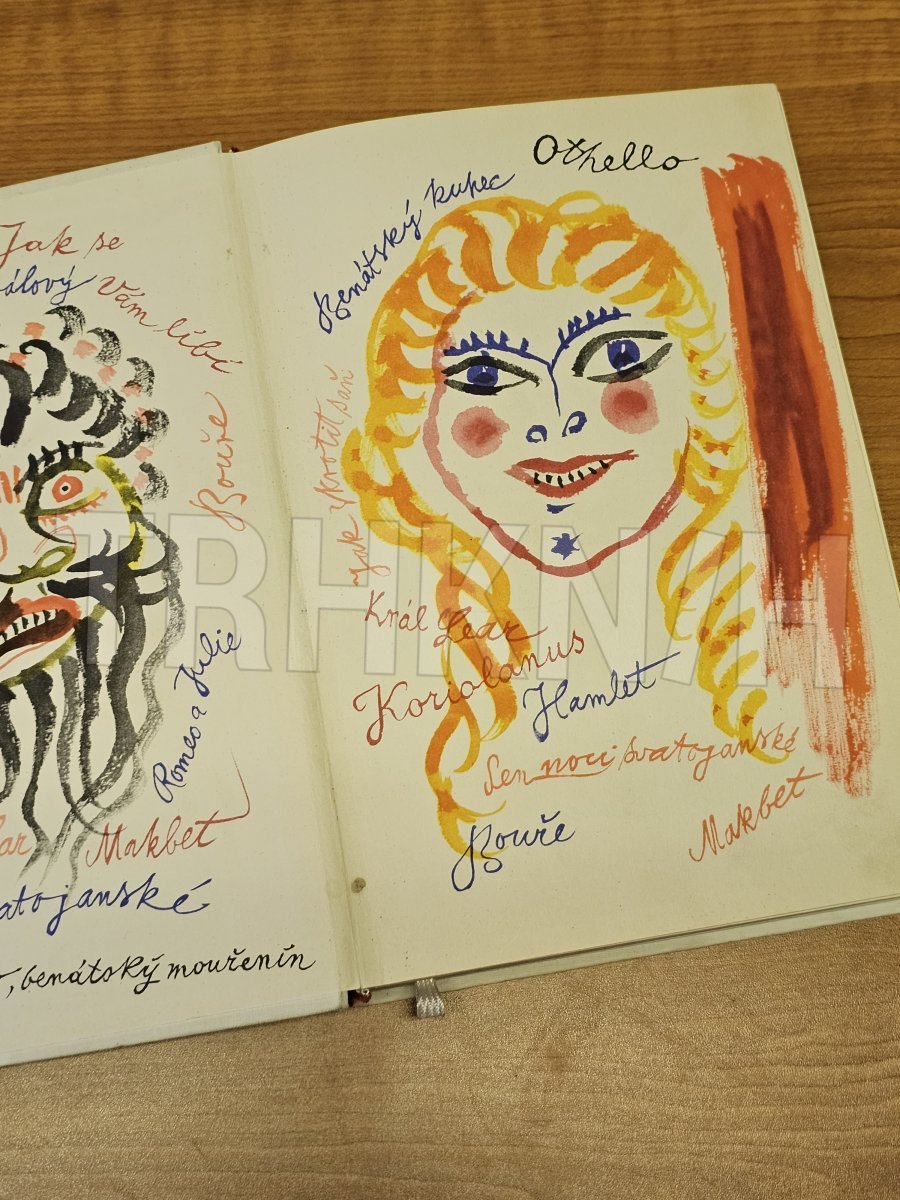 Jak se
álový
Vám líbí
Bouře
Romeo a Julie
ar
Makbet
atojanské
, benátský mouřenín
Othello
Benátský kupec
Jak zkrotit saň
Král Lear
Koriolanus
Hamlet
Sen noci svatojanské
Bouře
Makbet
TRHKNIH